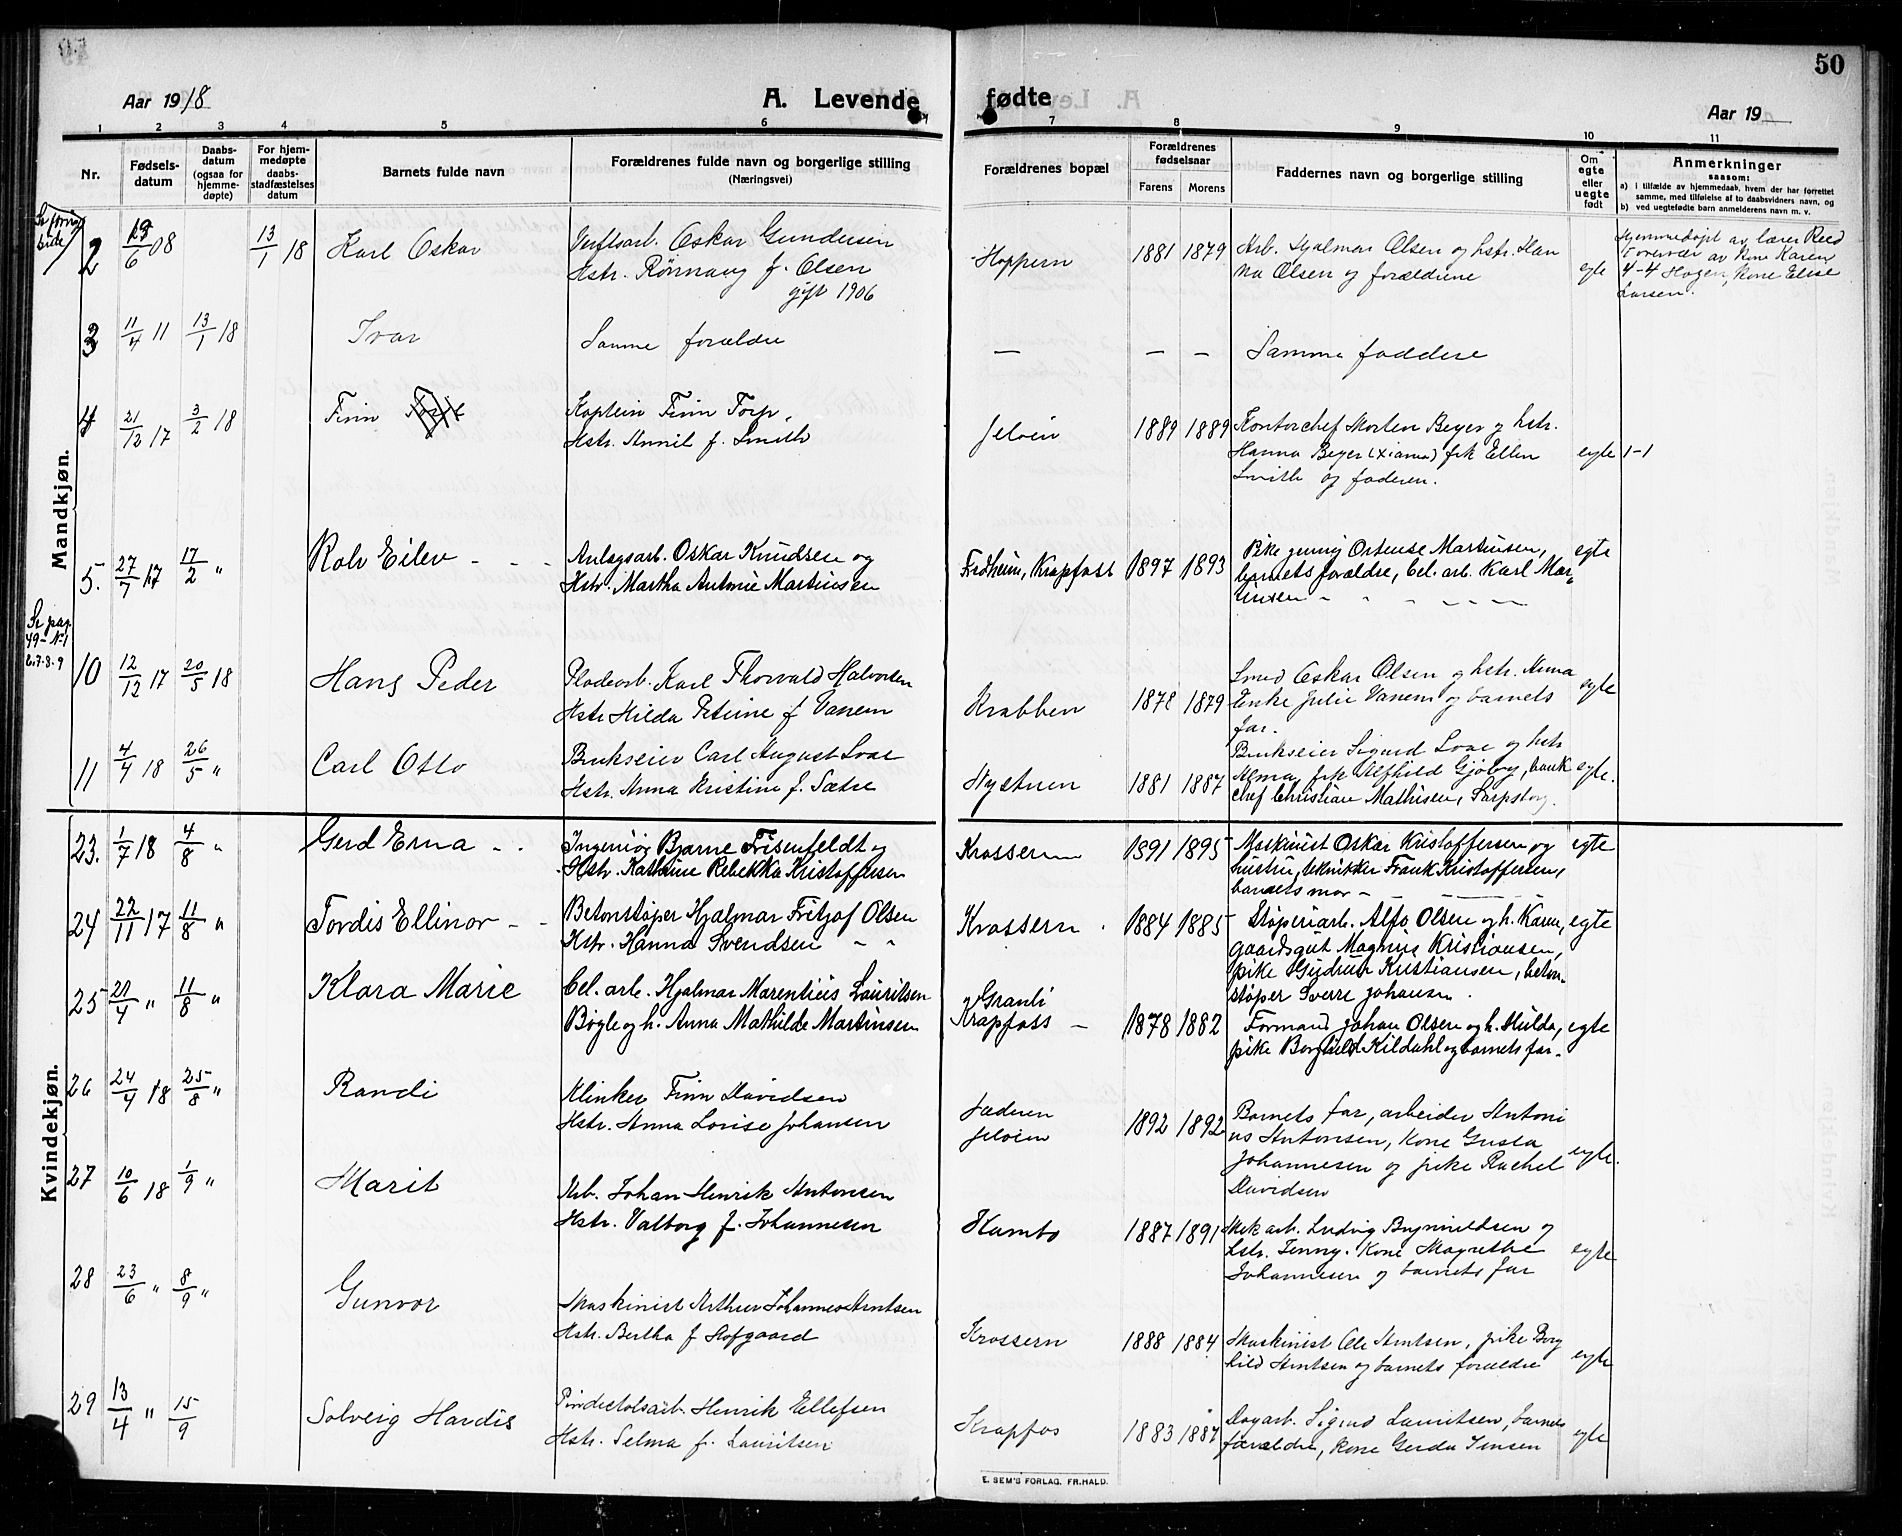 50
Aar 1918
A. Levende fødte
Aar 19
1 2 3 4 5 6 7 8 9 10 11
Nr.
Fødsels-
datum
Daabs-
datum
(ogsaa for
hjemme-
døpte)
For hjem-
medøpte
daabs-
stadfæstelses
datum
Barnets fulde navn
Forældrenes fulde navn og borgerlige stilling
(Næringsvei)
Forældrenes bopæl
Forældrenes
fødselsaar
Farens Morens
Faddernes navn og borgerlige stilling
Om
egte
eller
uegte
født
Anmerkninger
saasom:
a) i tilfælde av hjemmedaab, hvem der har forrettet
samme, med tilføielse af to daabsvidners navn, og
b) ved uegtefødte barn anmelderens navn m. v.
Mandkjøn.
Se forrige
side
2 /6 08 13/1 18 Karl Oskar
Verftsarb. Oskar Gundersen
Hstr. Rönnaug f. Olsen
gift 1906
Hoppern 1881 1879
Arb. Hjalmar Olsen og hstr. Han
na Olsen og forældrene
egte
Hjemmedøpt av lærer Reed
overvær av Kone Karen
4-4 Hagen, Kone Elise
Larsen.
3 11/4 11 13/1 18 Ivar
Samme forældre
— — —
Samme faddere
4 21/12 17 3/2 18 Finn
Kaptein Finn Torp,
Hstr. Annil f. Smith
Jeløien 1889 1889
Kontorchef Morten Beyer og hstr.
Hanna Beyer (Xiania) frk Ellen
Smith og faderen.
egte 1-1
5. 27/7 17 17/2 " Rolv Eilev - - -
Anlægsarb. Oskar Knudsen og
Hstr. Martha Antonie Martinsen
Fredheim, Krapfoss 1897 1893
Pike Jenny Ortense Martinsen,
barnets forældre, Cel. arb. Karl Mar-
tinsen - - - - -
egte
Se pag.
49 - No 1
6.7.8.9
10 12/12 17 20/5 18 Hans Peder
Pladearb. Karl Thorvald Halvorsen
Hstr Hilda Petrine f Vanem
Krabben 1878 1879
Smed Oskar Olsen og hstr. Anna
Enke Julie Vanem og barnets
far.
egte
11 4/4 18 26/5 " Carl Otto
Brukseier Carl August Loae
Hstr. Anna Kristine f. Sætre
Nystuen 1881 1887
Brukseier Sigurd Loae og hstr
Alma, frk Alfhild Gjöby, bank
chef Christian Mathisen, Sarpsborg.
egte.
Kvindekjøn.
23. 1/7 18 4/8 " Gerd Erna - .
Ingeniör Bjarne Frisenfeldt og
Hstr. Kathrine Rebekka Kristoffersen
Krossern 1891 1895
Maskinist Oskar Kristoffersen og
hustru, tekniker Frank Kristoffersen,
barnets mor -
egte
24 22/11 17 11/8 " Tordis Ellinor - -
Betonstøper Hjalmar Fritjof Olsen
Hstr. Hanna Svendsen - -
Krossern . 1884 1885
Støperiarb. Alfr. Olsen og h. Karen,
gaardsgut Magnus Kristiansen,
pike Gudrun Kristiansen, beton-
støper Sverre Johansen.
egte
25 21/4 " 11/8 " Klara Marie
Cel. arb. Hjalmar Marentius Lauritsen
Bøgle og h. Anna Mathilde Martinsen
Granli
Krapfoss - 1878 1882
Formand Johan Olsen og h. Hulda,
pike Borghild Kildahl og barnets far.
egte
26 24/4 18 25/8 " Randi
Klinker Finn Davidsen
Hstr. Anna Lovise Johansen
Jæderen
Jeløien 1892 1892
Barnets far, arbeider Antoni
us Antonsen, Kone Gusta
Johannesen og pike Rachel
Davidsen
egte.
27 10/6 18 1/9 " Marit
Arb. Johan Henrik Antonsen
Hstr. Valborg f. Johannesen
Kambo 1887 1891
Mek arb. Ludvig Brynildsen og
hstr. Jenny. Kone Magrethe
Johannesen og barnets far
egte
28 23/6 " 8/9 " Gunvor
Maskinist Arthur Johannes Arntsen
Hstr. Bertha f Hofgaard
Krossern 1888 1884
Maskinist Ole Arntsen, pike Borg
hild Arntsen og barnets forældre
egte
29 13/4 " 15/9 Solveig Hardis
Hstr. Selma f. Lauritsen
Henrik Ellefsen
Krapfos 1883 1887
Dagarb. Sigurd Lauritsen, barnets
forældre, Kone Gerda Jensen
egte
E. SEM'S FORLAG. FR.HALD.